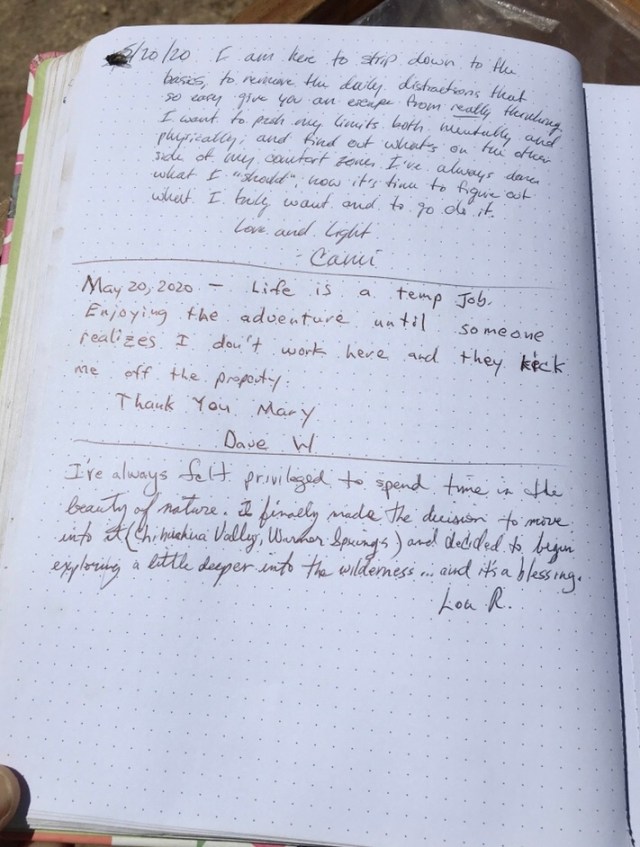 5/20/20 I am here to strip down to the
basics, to remove the daily distractions that
so easy give you an escape from really thinking
I want to push my limits both mentally and
physically; and find out what's on the other
side of my comfort zones. I've always done
what I "should", now it's time to figure out
what I truly want and to go do it.
Love and Light
- Cami
May 20, 2020 - Life is a temp Job.
Enjoying the adventure until someone
realizes I don't work here and they kick
me off the property.
Thank You Mary
Dave W
I've always felt privileged to spend time in the
beauty of nature. I finally made the decision to move
into it (Chihuahua Valley, Warner Springs) and decided to begin
exploring a little deeper into the wilderness ... and it's a blessing.
Lou R.